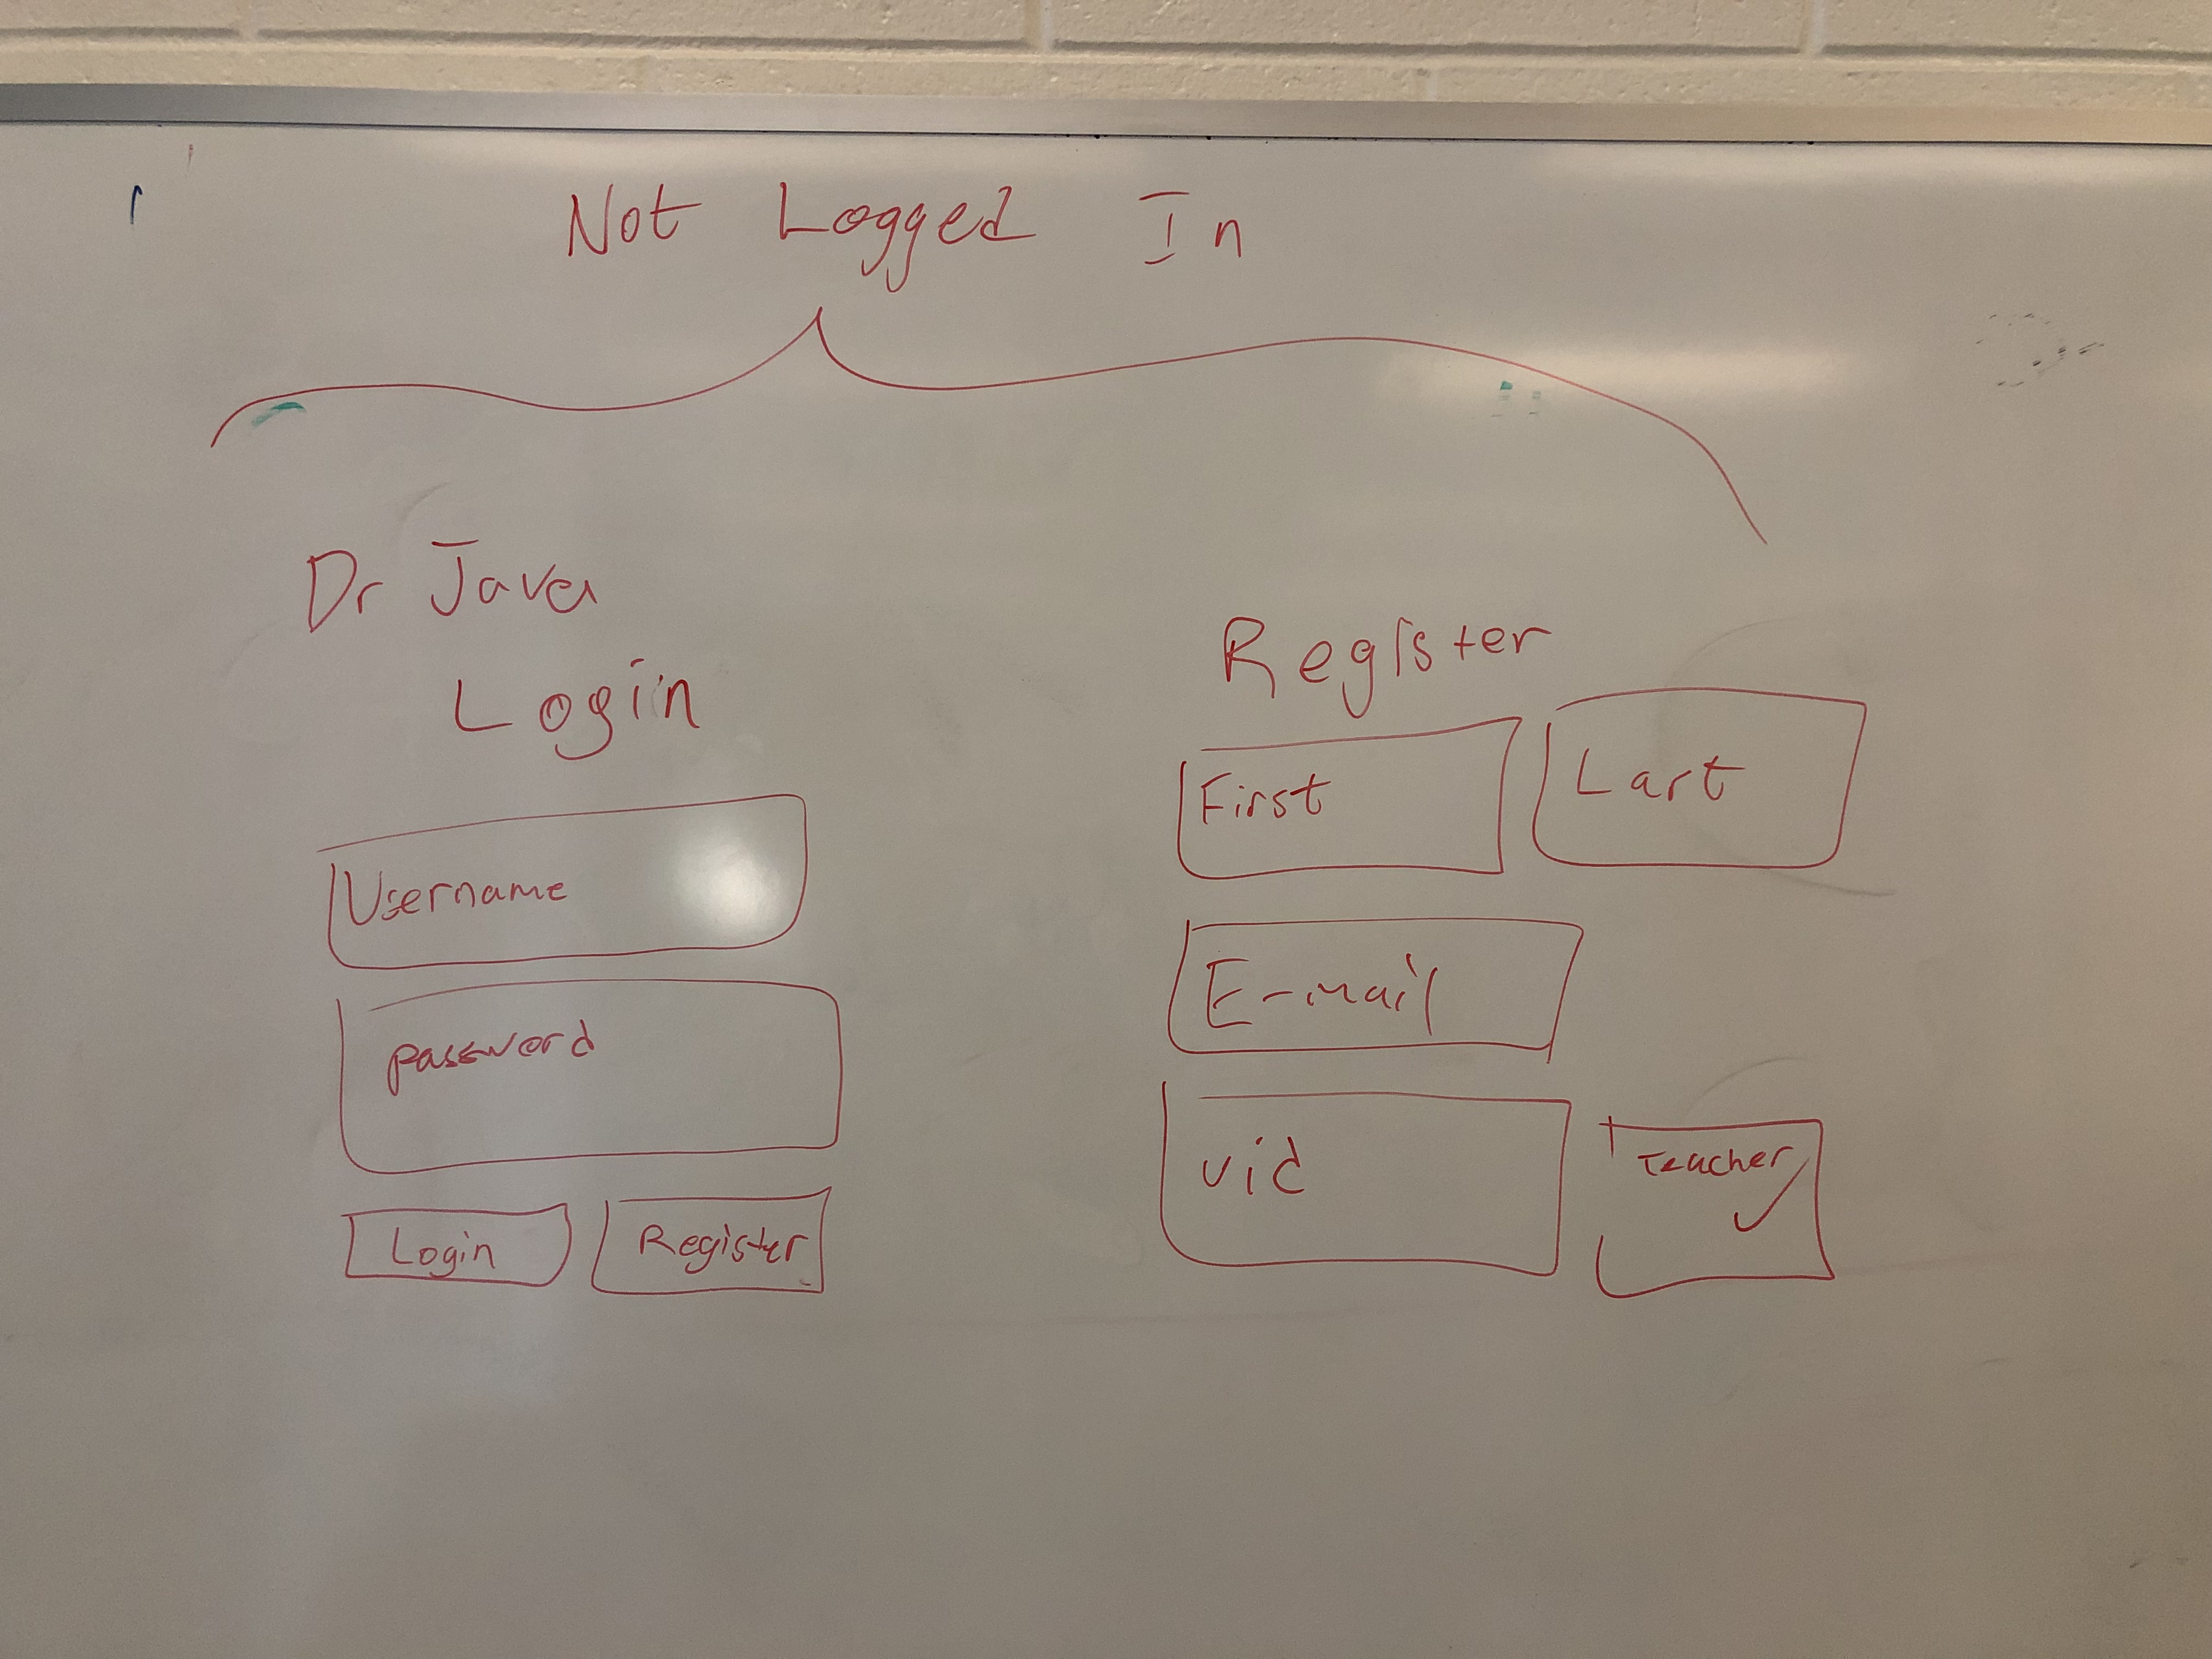 Not Logged In
Dr Java
Login
Username
password
Login Register
Register
First Last
E-mail
vid
Teacher